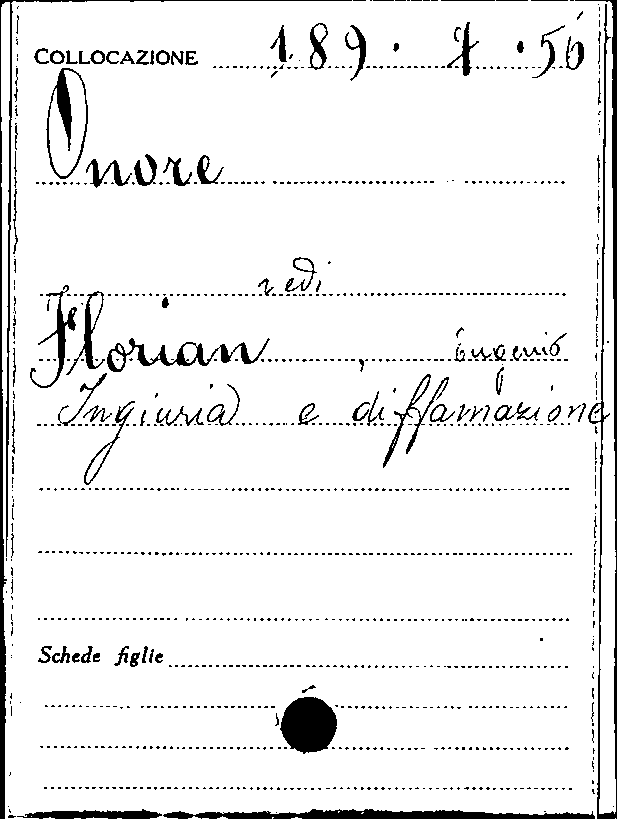 COLLOCAZIONE 189. 7 .56
Onore
vedi
Florian, Eugenio
Ingiuria e diffamazione
Schede figlie